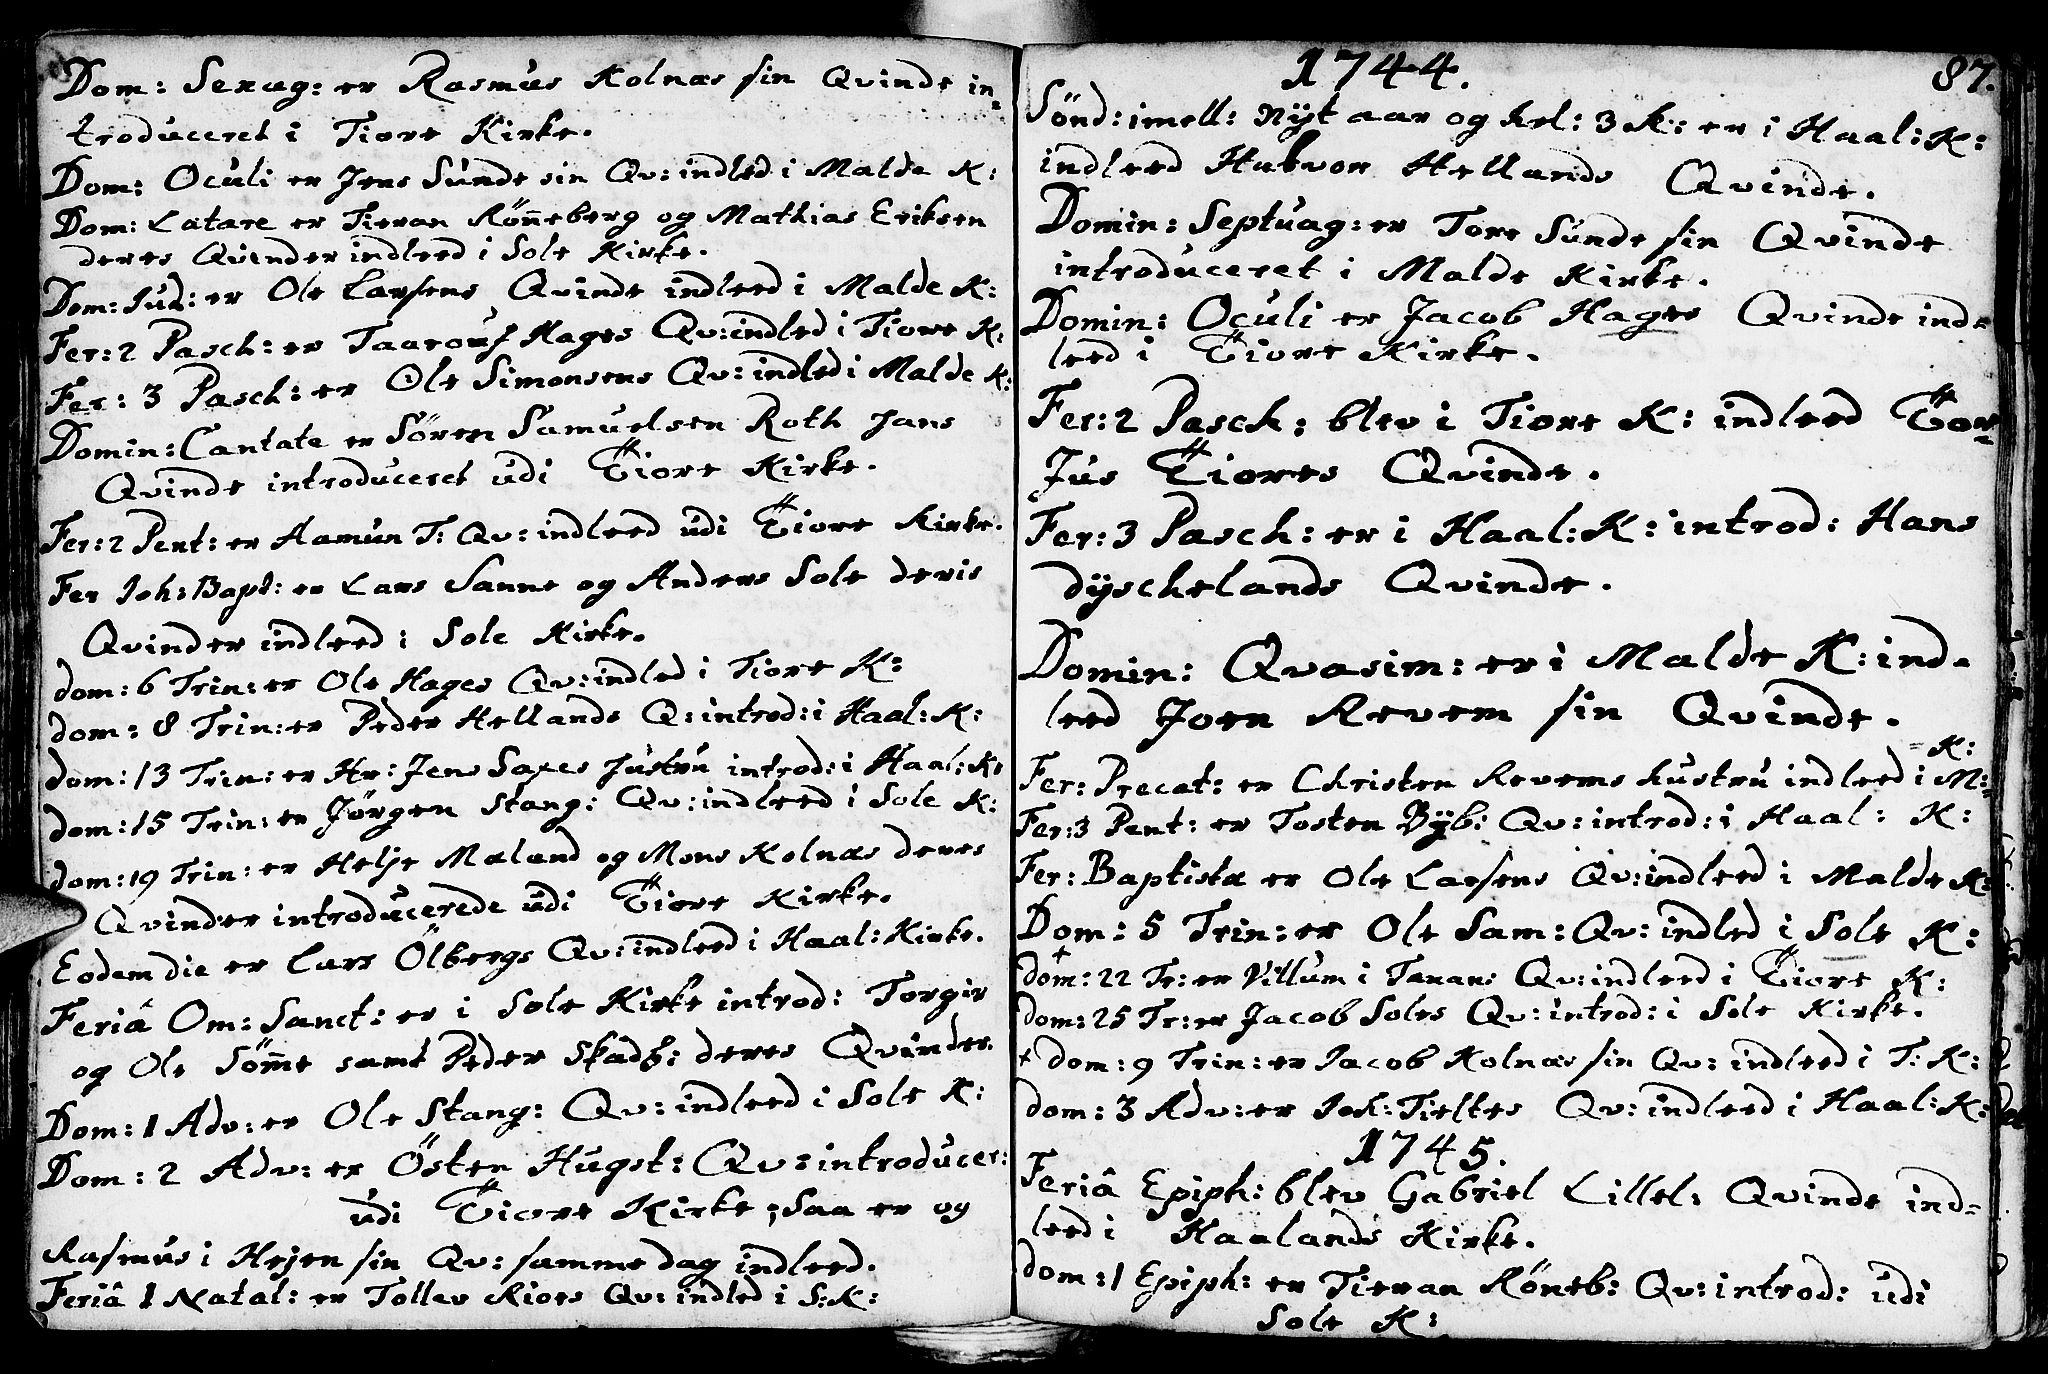 Dom: Sexag: er Rasmus Kolnæs sin Qvinde in-
troduceret i Tiore Kirke.
Dom: Oculi er Jens Sunde sin Qv: indled i Malde K:
Dom: Lætare er Tieran Rönneberg og Mathias Eriksen
deres Qvinder indleed i Sole Kirke.
Dom: Jud: er Ole Larsens Qvinde indleed i Malde K:
Fer: 2 Pasch: er Taarouf Hages Qv: indled i Tiore K:
Fer: 3 Pasch: er Ole Simonsens Qv: indled i Malde K:
Domin: Cantate er Sören Samuelsen Roth Jans
Qvinde introduceret udi Tiore Kirke.
Fer: 2 Pent: er Aamun T: Qv: indleed udi Tiore Kirke.
Fer Joh: Bapt: er Lars Sanne og Anders Sole deris
Qvinder indleed i Sole Kirke.
dom: 6 Trin: er Ole Hages Qv: indled i Tiore K:
dom: 8 Trin: er Peder Hellands Q: introd: i Haal: K:
dom: 13 Trin: er Hr: Jens Saxes Hustru introd: i Haal: K:
dom: 15 Trin: er Jörgen Stang: Qv: indleed i Sole K:
dom: 19 Trin: er Helje Mæland og Mons Kolnæs deres
Qvinder introducerede udi Tiore Kirke.
Eodem die er Lars Ölbergs Qv: indleed i Haal: Kirke.
Feriâ Om: Sanct: er i Sole Kirke introd: Torgir
og Ole Sömme samt Peder Skadb: deres Qvinder.
Dom: 1 Adv: er Ole Stang: Qv: indleed i Sole K:
Dom: 2 Adv: er Östen Hugst: Qv: introducer:
udi Tiore Kirke; Saa er og
Rasmus i Hejen sin Qv: samme dag indleed.
Feriâ 1 Natal: er Tollev Riors Qv: indled i S: K:
1744.
87.
Sönd: imell: Nÿt aar og hel: 3 K: er i Haal: K:
indleed Halvor Hellands Qvinde.
Domin: Septuag: er Tore Sunde sin Qvinde
introduceret i Malde Kirke.
Domin: Oculi er Jacob Hages Qvinde ind-
leed i Tiore Kirke.
Fer: 2 Pasch: blev i Tiore K: indleed Tor-
Jus Tiores Qvinde.
Fer: 3 Pasch: er i Haal: K: introd: Hans
dÿschelands Qvinde.
Domin: Qvasim: er i Malde K: ind-
leed Joen Revem sin Qvinde.
K:
Fer: Precat: er Christen Revems hustru indleed i M:
Fer: 3 Pent: er Tosten Bÿb: Qv: introd: i Haal: K:
Fer: Baptistæ er Ole Larsens Qv: indleed i Malde K:
Dom: 5 Trin: er Ole Sam: Qv: indled i Sole K:
dom: 22 Tr: er Villum i Tanan: Qv: indleed i Tiore K:
dom: 25 Tr: er Jacob Soles Qv: introd: i Sole Kirke.
+ dom: 9 Trin: er Jacob Kolnæs sin Qv: indleed i T: K:
dom: 3 Adv: er Joh: Tieltes Qv: indleed i Haal: K:
1745.
Feriâ Epiph: blev Gabriel Lillel: Qvinde ind-
leed i Haalands Kirke.
dom: 1 Epiph: er Tieran Röneb: Qv: introd: udi
Sole K: